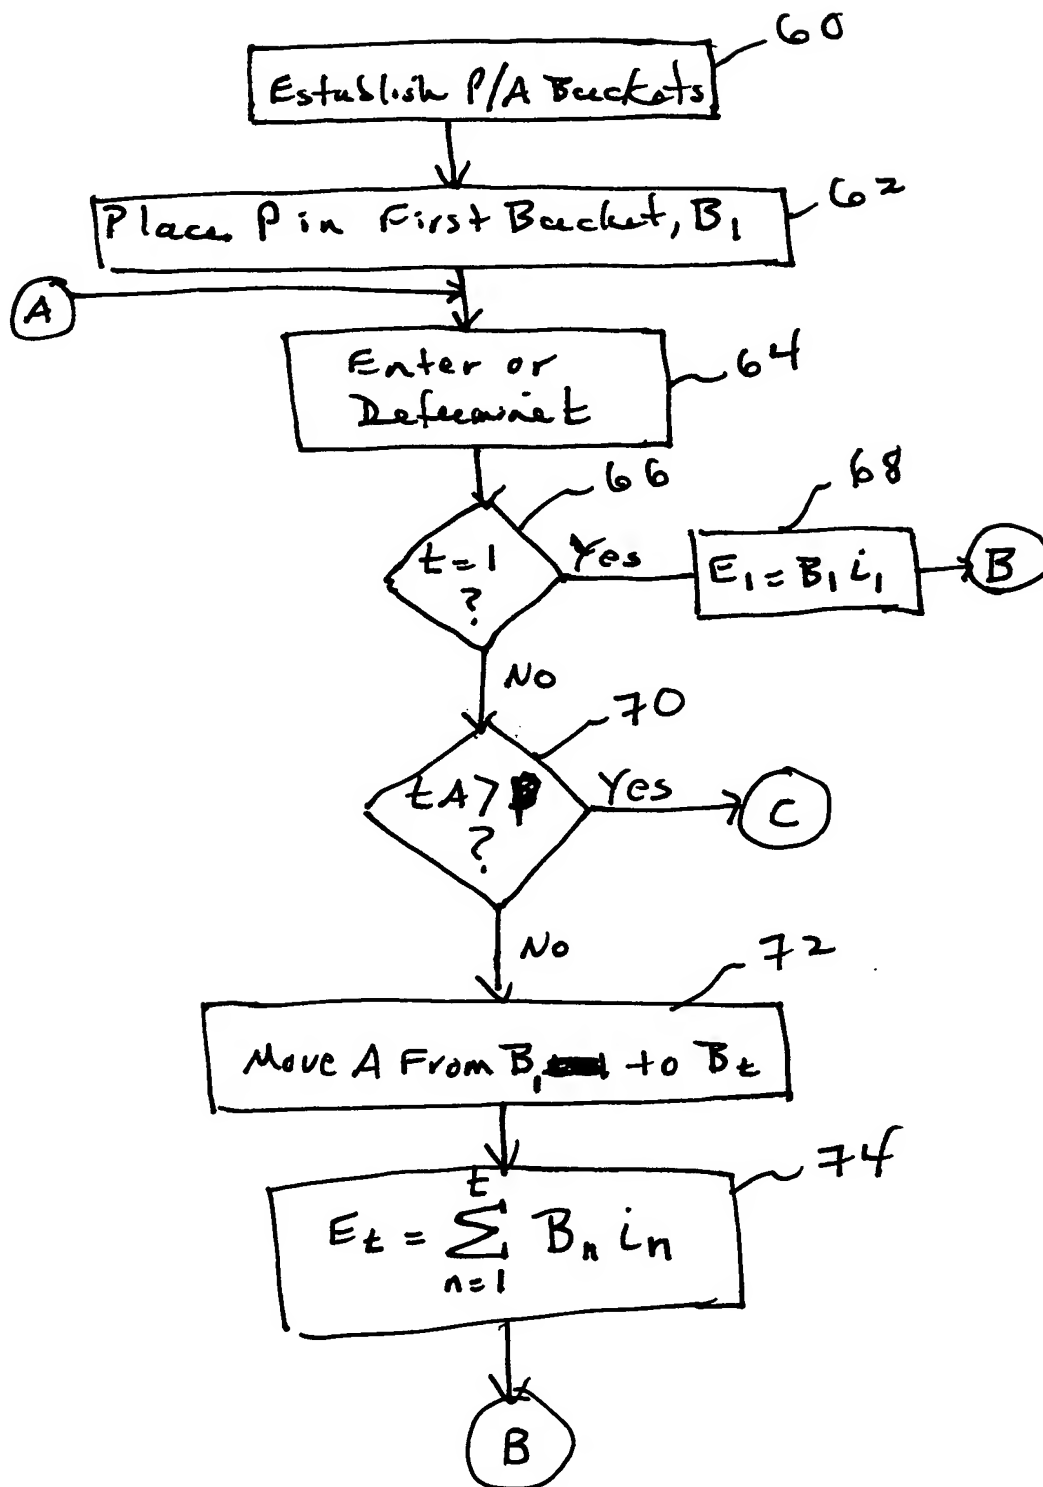 60
Establish P/A Buckets
62
Place P in First Bucket, B1
A
64
Enter or
Determine t
66
68
t=1
?
Yes
E1 = B1 i1
B
No
70
tA > P
?
Yes
C
No
72
Move A From B1 to Bt
74
t
Et = Σ Bn in
n=1
B